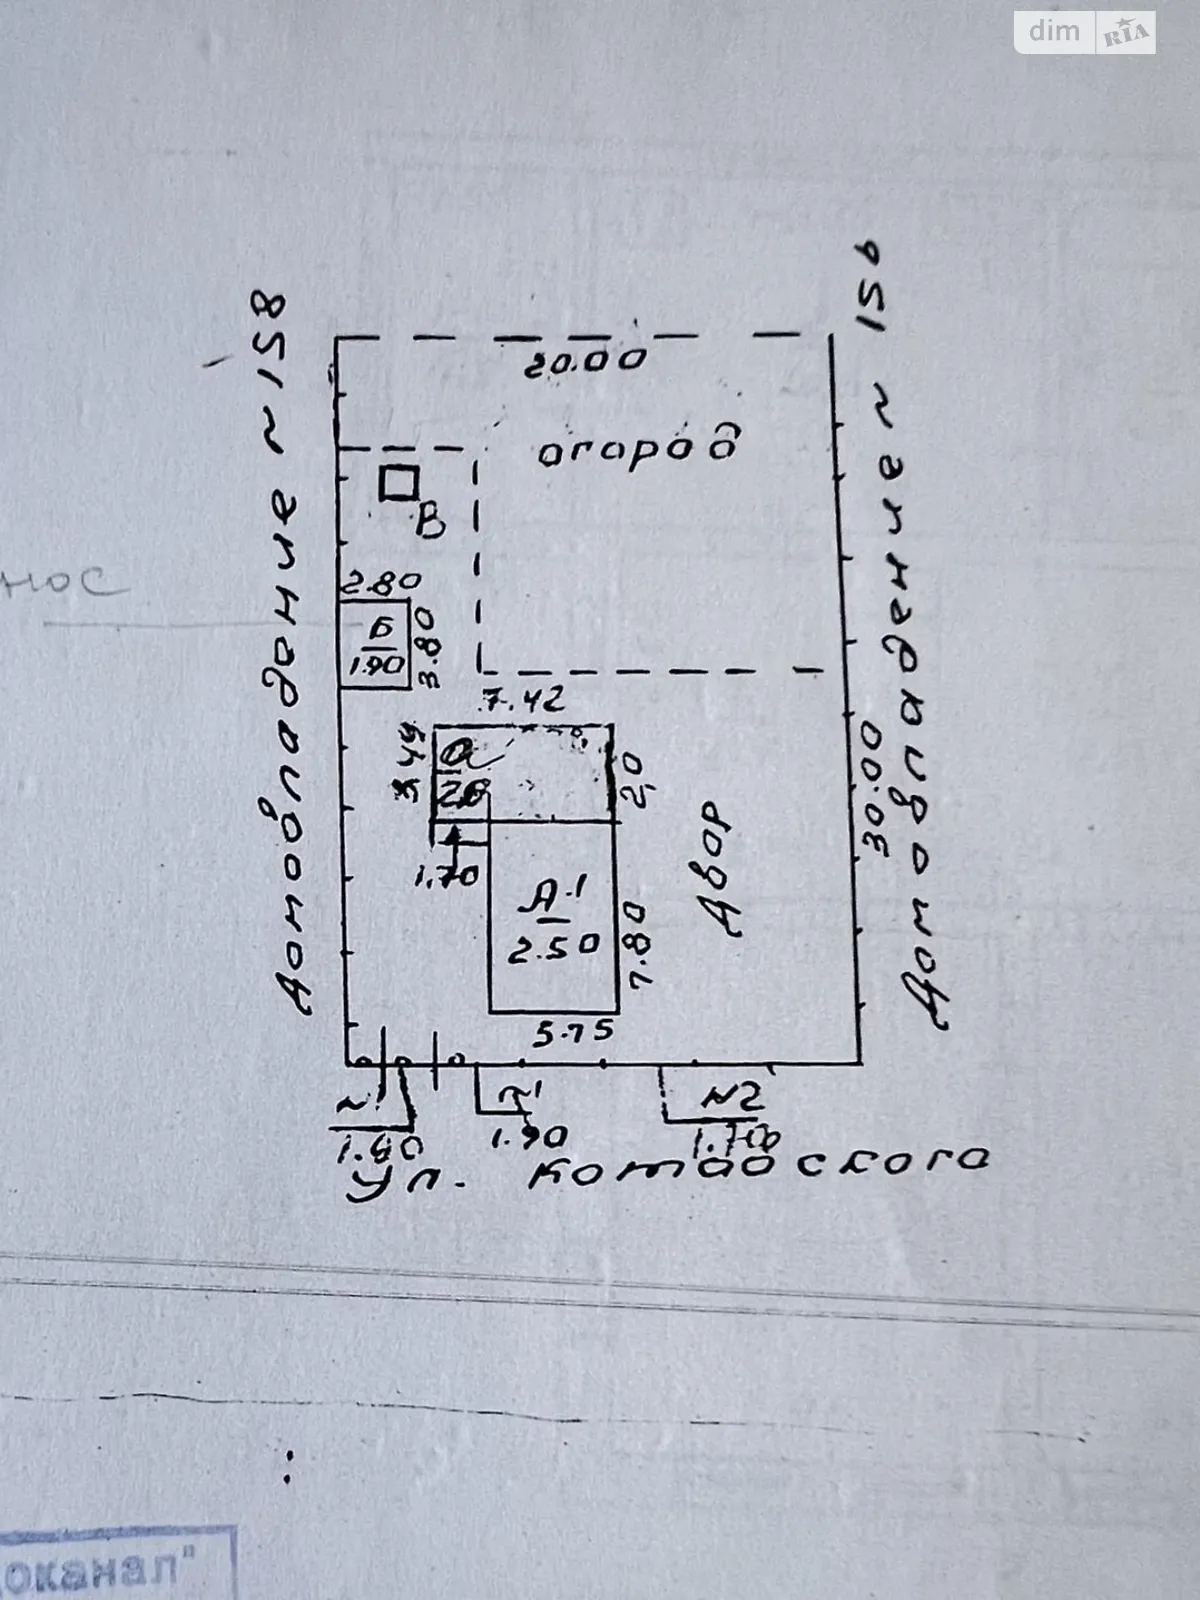 dim RIA
Домовладение ~ 158
Домовладение ~ 156
20.00
огород
В
нос
2.80
Б
1.90
3.80
7.42
3.49
а
2.0
30.00
Двор
1.70
А-1
2.50
7.80
5.75
~1
1.90
№2
ул. Котовского
оканал"